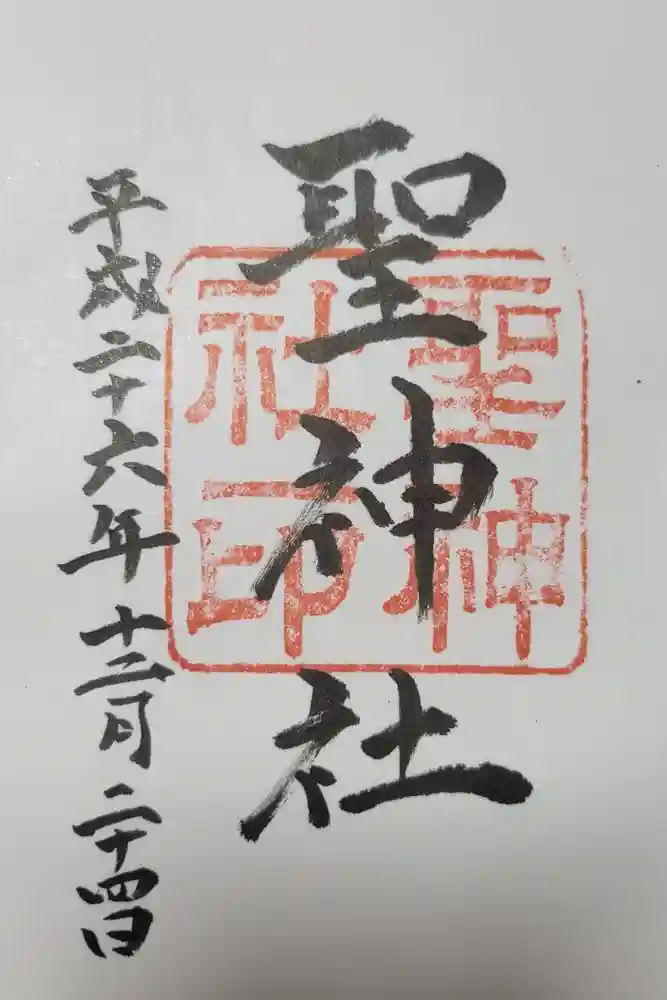 聖神社
聖神
社印
平成二十六年十二月二十四日